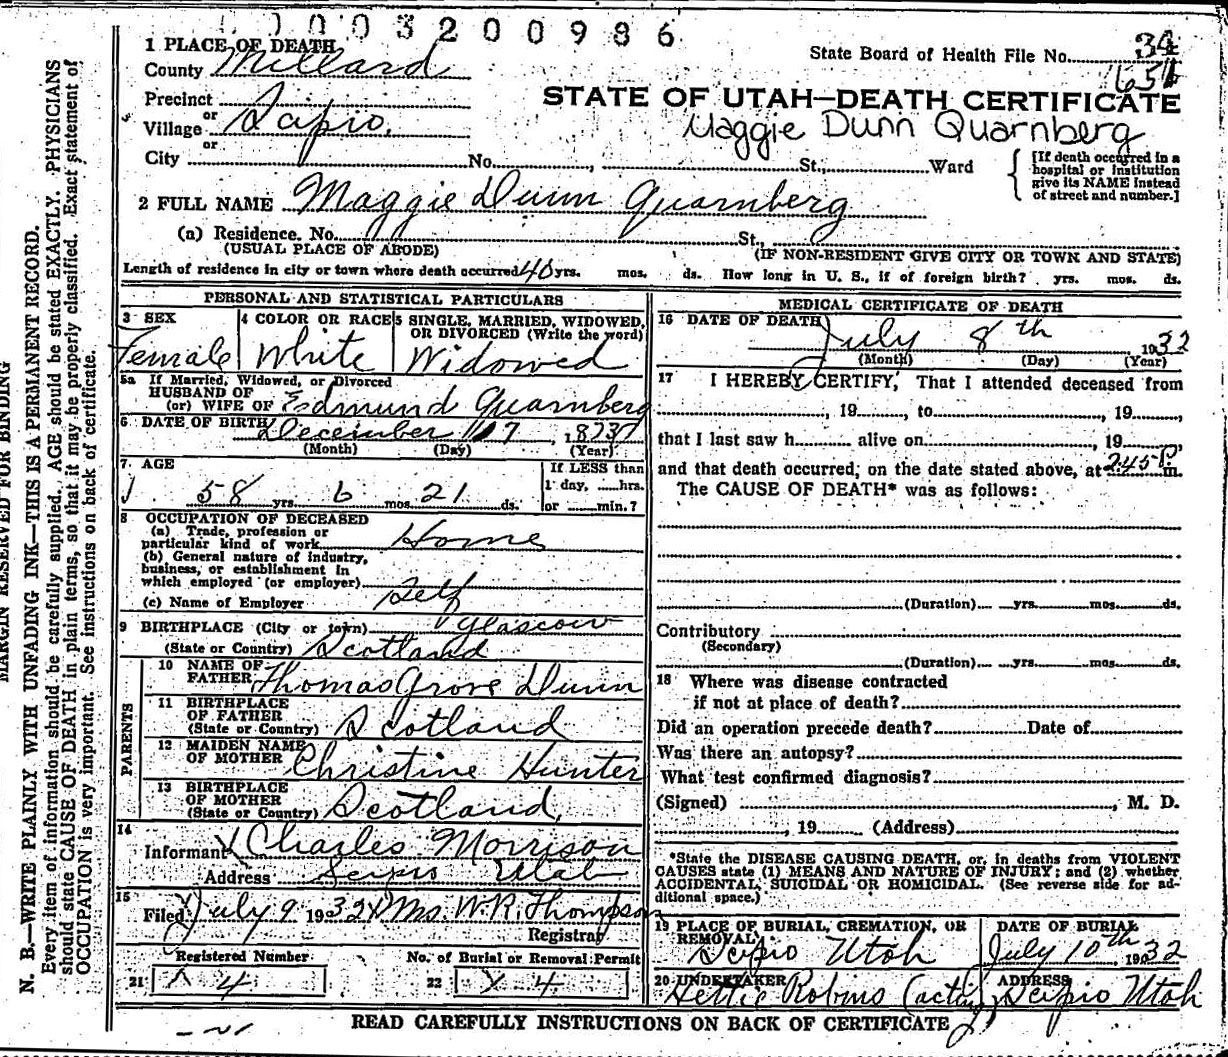 0003200986
1 PLACE OF DEATH
County Millard
State Board of Health File No. 34
Precinct
or
Village Scipio.
or
STATE OF UTAH—DEATH CERTIFICATE
Maggie Dunn Quarnberg
City No. , St., Ward
[If death occurred in a
hospital or institution
give its NAME instead
of street and number.]
2 FULL NAME Maggie Dunn Quarnberg
(a) Residence. No. St.,
(USUAL PLACE OF ABODE) (IF NON-RESIDENT GIVE CITY OR TOWN AND STATE)
Length of residence in city or town where death occurred 40 yrs. mos. ds. How long in U. S., if of foreign birth? yrs. mos. ds.
PERSONAL AND STATISTICAL PARTICULARS
3 SEX
Female
4 COLOR OR RACE
White
5 SINGLE, MARRIED, WIDOWED,
OR DIVORCED (Write the word)
Widowed
5a If Married, Widowed, or Divorced
HUSBAND OF
(or) WIFE OF Edmund Quarnberg
6 DATE OF BIRTH December 17, 1873
(Month) (Day) (Year)
7. AGE
58 yrs. 6 mos. 21 ds.
If LESS than
1 day, hrs.
or min.?
8 OCCUPATION OF DECEASED
(a) Trade, profession or
particular kind of work Home
(b) General nature of industry,
business, or establishment in
which employed (or employer)
(c) Name of Employer Self
9 BIRTHPLACE (City or town) Glascow
(State or Country) Scotland
PARENTS
10 NAME OF
FATHER Thomas Grove Dunn
11 BIRTHPLACE
OF FATHER
(State or Country) Scotland
12 MAIDEN NAME
OF MOTHER Christine Hunter
13 BIRTHPLACE
OF MOTHER
(State or Country) Scotland,
14
Informant Charles Morrison
Address Scipio Utah
15
Filed July 9 1932 Mrs. W.R. Thompson
Registrar
Registered Number
21 4
No. of Burial or Removal Permit
22 4
MEDICAL CERTIFICATE OF DEATH
16 DATE OF DEATH July 8th 1932
(Month) (Day) (Year)
17 I HEREBY CERTIFY, That I attended deceased from
, 19 , to , 19 ,
that I last saw h alive on , 19 ,
and that death occurred, on the date stated above, at 2:45 P. m.
The CAUSE OF DEATH* was as follows:
(Duration) yrs. mos. ds.
Contributory
(Secondary)
(Duration) yrs. mos. ds.
18 Where was disease contracted
if not at place of death?
Did an operation precede death? Date of
Was there an autopsy?
What test confirmed diagnosis?
(Signed) , M. D.
, 19 (Address)
*State the DISEASE CAUSING DEATH, or, in deaths from VIOLENT
CAUSES state (1) MEANS AND NATURE OF INJURY; and (2) whether
ACCIDENTAL, SUICIDAL OR HOMICIDAL. (See reverse side for ad-
ditional space.)
19 PLACE OF BURIAL, CREMATION, OR
REMOVAL
Scipio Utah
DATE OF BURIAL
July 10th 1932
20 UNDERTAKER
Hettie Robins (acting)
ADDRESS
Scipio Utah
READ CAREFULLY INSTRUCTIONS ON BACK OF CERTIFICATE
MARGIN RESERVED FOR BINDING
N. B.—WRITE PLAINLY WITH UNFADING INK—THIS IS A PERMANENT RECORD.
Every item of information should be carefully supplied. AGE should be stated EXACTLY. PHYSICIANS
should state CAUSE OF DEATH in plain terms, so that it may be properly classified. Exact statement of
OCCUPATION is very important. See instructions on back of certificate.